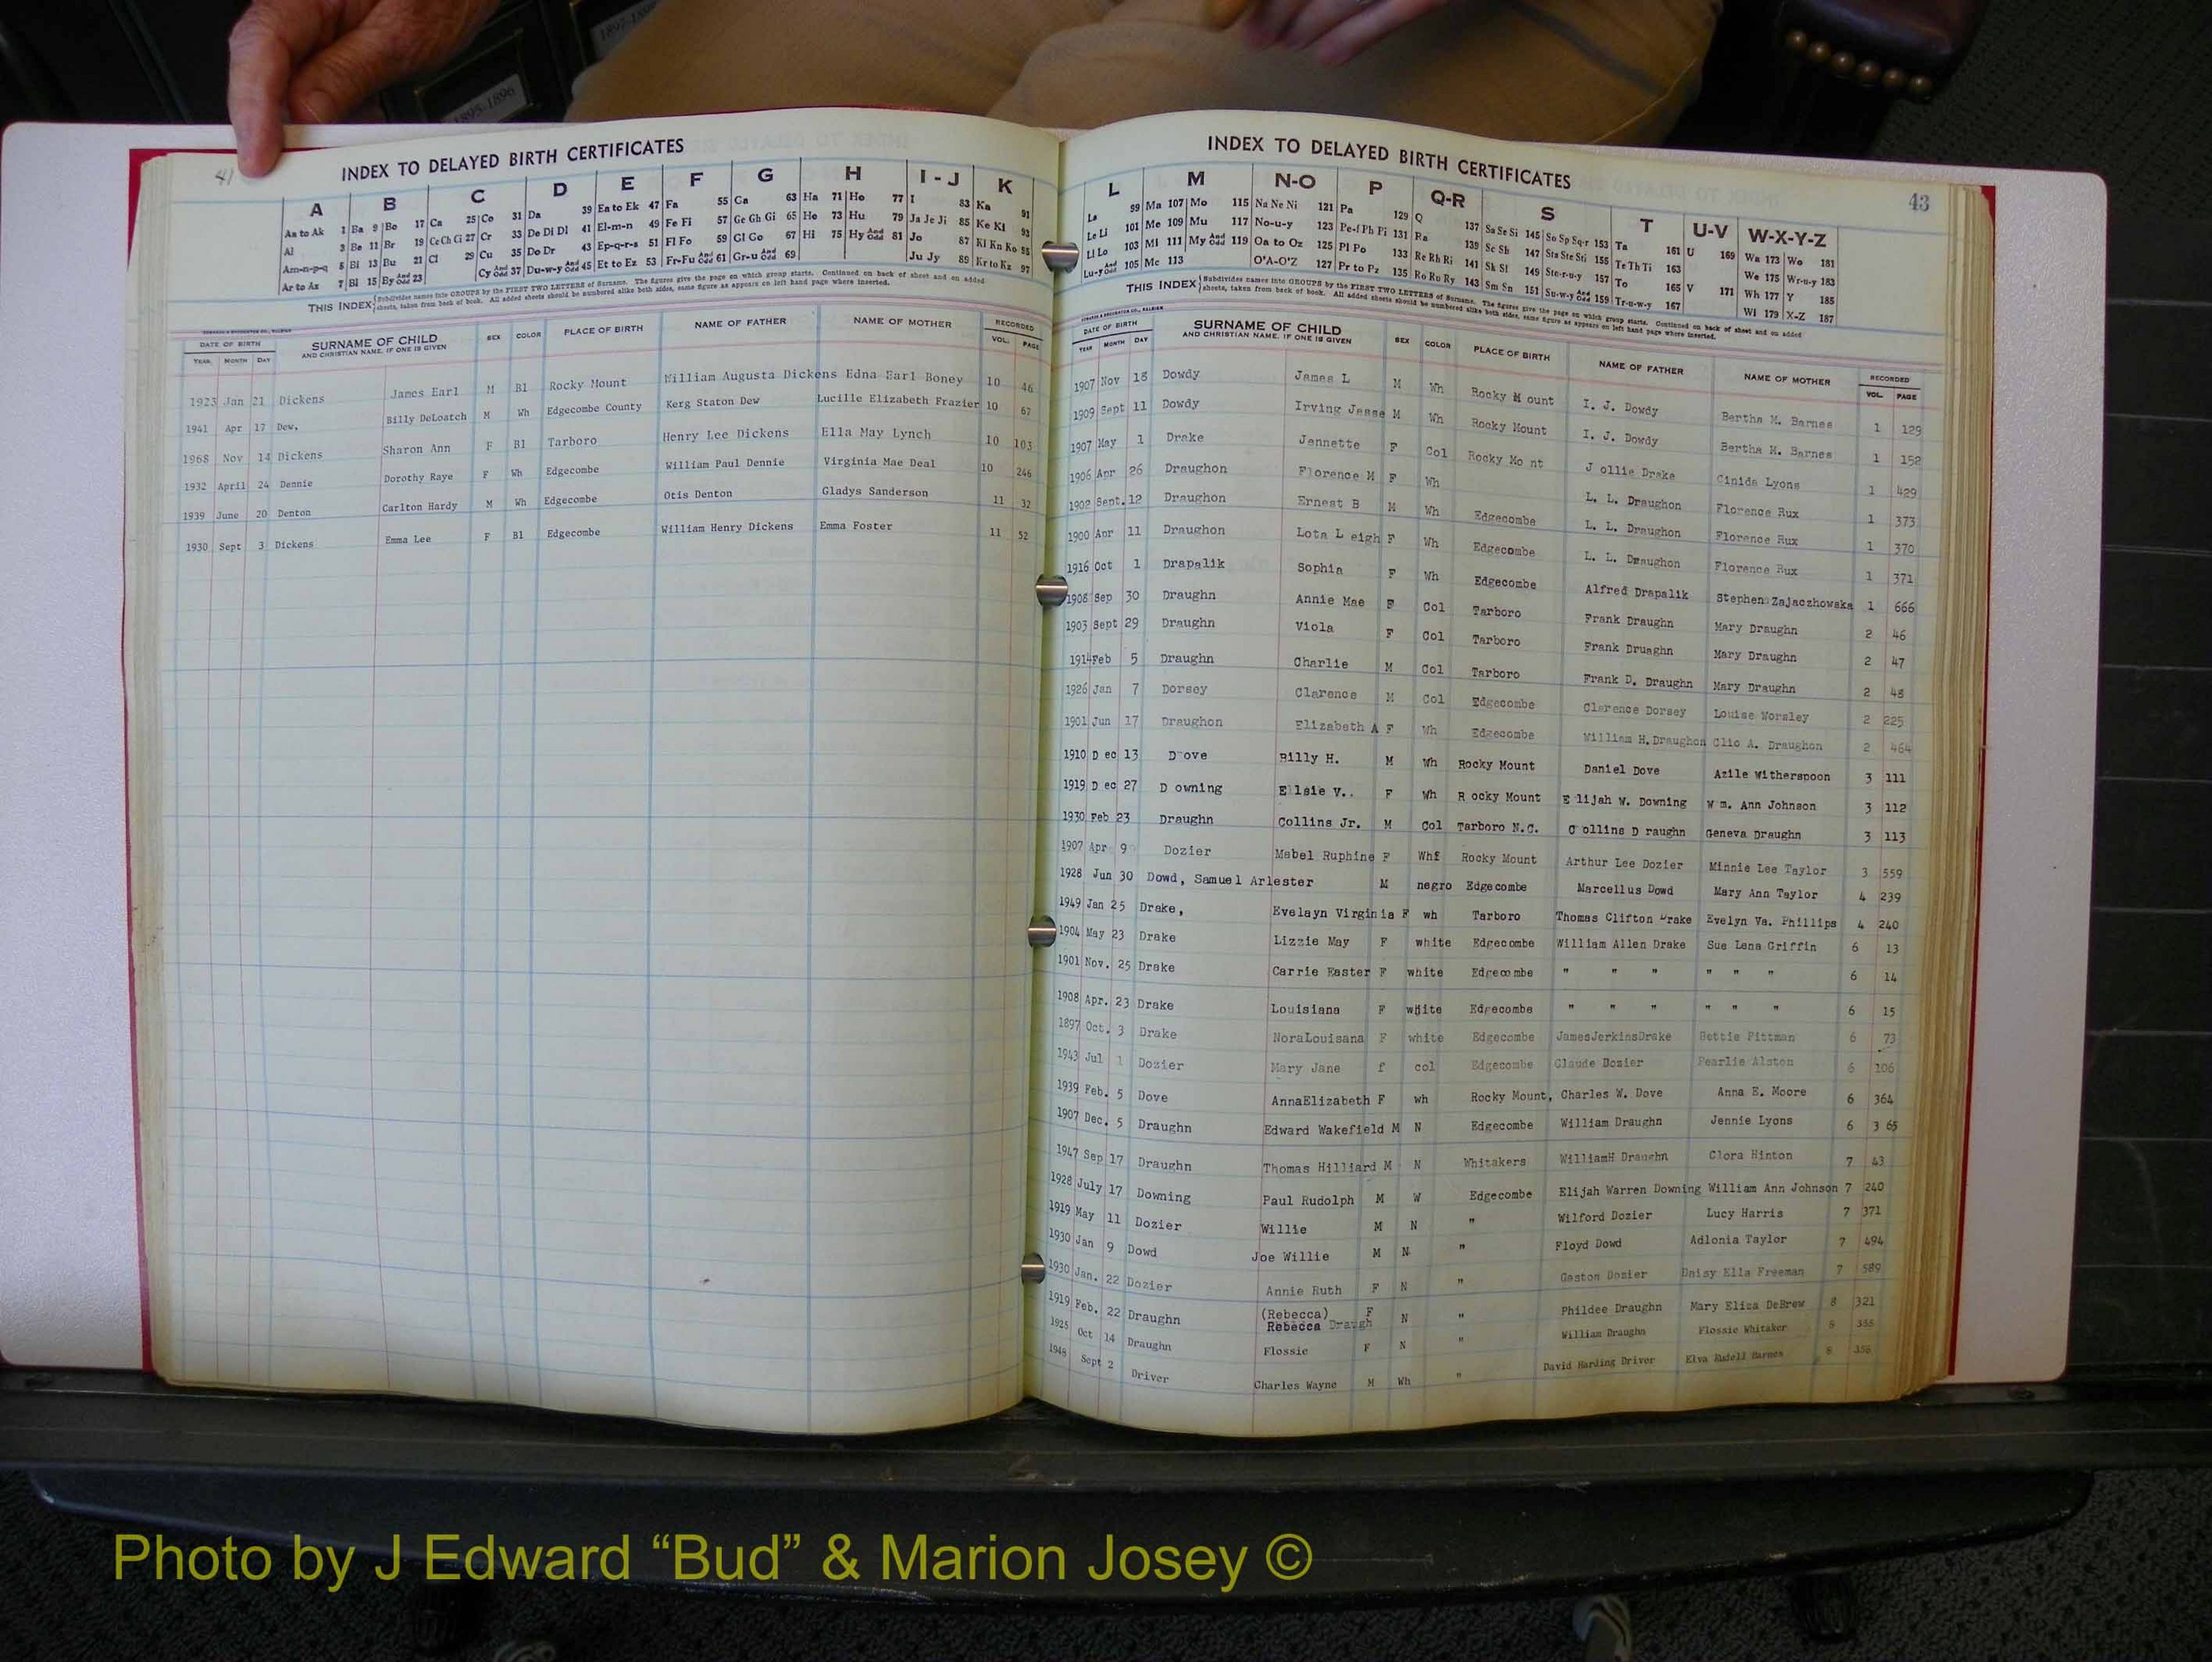 1897-189
1895-1896
41
INDEX TO DELAYED BIRTH CERTIFICATES
A B C D E F G H I - J K
Aa to Ak 1 Ba 9 Bo 17 Ca 25 Co 31 Da 39 Ea to Ek 47 Fa 55 Ga 63 Ha 71 Ho 77 I 83 Ka 91
Al 3 Be 11 Br 19 Ce Ch Ci 27 Cr 33 De Di Dl 41 El-m-n 49 Fe Fi 57 Ge Gh Gi 65 He 73 Hu 79 Ja Je Ji 85 Ke Kl 93
Am-n-p-q 5 Bi 13 Bu 21 Cl 29 Cu 35 Do Dr 43 Ep-q-r-s 51 Fl Fo 59 Gl Go 67 Hi 75 Hy And Odd 81 Jo 87 Ki Kn Ko 95
Ar to Az 7 Bl 15 By And Odd 23 Cy And Odd 37 Du-w-y And Odd 45 Et to Ez 53 Fr-Fu And Odd 61 Gr-u And Odd 69 Ju Jy 89 Kr to Kz 97
THIS INDEX Subdivides names into GROUPS by the FIRST TWO LETTERS of Surname. The figures give the page on which group starts. Continued on back of sheet and on added
sheets, taken from back of book. All added sheets should be numbered alike both sides, same figure as appears on left hand page where inserted.
DATE OF BIRTH SURNAME OF CHILD SEX COLOR PLACE OF BIRTH NAME OF FATHER NAME OF MOTHER RECORDED
YEAR MONTH DAY AND CHRISTIAN NAME, IF ONE IS GIVEN VOL. PAGE
1923 Jan 21 Dickens James Earl M Bl Rocky Mount William Augusta Dickens Edna Earl Boney 10 46
1941 Apr 17 Dew, Billy DeLoatch M Wh Edgecombe County Kerg Staton Dew Lucille Elizabeth Frazier 10 67
1968 Nov 14 Dickens Sharon Ann F Bl Tarboro Henry Lee Dickens Ella May Lynch 10 103
1932 April 24 Dennie Dorothy Raye F Wh Edgecombe William Paul Dennie Virginia Mae Deal 10 246
1939 June 20 Denton Carlton Hardy M Wh Edgecombe Otis Denton Gladys Sanderson 11 32
1930 Sept 3 Dickens Emma Lee F Bl Edgecombe William Henry Dickens Emma Foster 11 52
INDEX TO DELAYED BIRTH CERTIFICATES 43
L M N-O P Q-R S T U-V W-X-Y-Z
La 99 Ma 107 Mo 115 Na Ne Ni 121 Pa 129 Q 137 Sa Se Si 145 So Sp Sq-r 153 Ta 161 U 169 Wa 173 Wo 181
Le Li 101 Me 109 Mu 117 No-u-y 123 Pe-f Ph Pi 131 Ra 139 Sc Sh 147 Sta Ste Sti 155 Te Th Ti 163 We 175 Wr-u-y 183
Ll Lo 103 Mi 111 My And Odd 119 Oa to Oz 125 Pl Po 133 Re Rh Ri 141 Sk Sl 149 Sto-r-u-y 157 To 165 V 171 Wh 177 Y 185
Lu-y And Odd 105 Mc 113 O'A-O'Z 127 Pr to Pz 135 Ro Ru Ry 143 Sm Sn 151 Su-w-y And Odd 159 Tr-u-w-y 167 Wi 179 X-Z 187
THIS INDEX Subdivides names into GROUPS by the FIRST TWO LETTERS of Surname. The figures give the page on which group starts. Continued on back of sheet and on added
sheets, taken from back of book. All added sheets should be numbered alike both sides, same figure as appears on left hand page where inserted.
DATE OF BIRTH SURNAME OF CHILD SEX COLOR PLACE OF BIRTH NAME OF FATHER NAME OF MOTHER RECORDED
YEAR MONTH DAY AND CHRISTIAN NAME, IF ONE IS GIVEN VOL. PAGE
1907 Nov 18 Dowdy James L M Wh Rocky M ount I. J. Dowdy Bertha M. Barnes 1 129
1909 Sept 11 Dowdy Irving Jesse M Wh Rocky Mount I. J. Dowdy Bertha M. Barnes 1 152
1907 May 1 Drake Jennette F Col Rocky Mo nt J ollie Drake Cinida Lyons 1 429
1906 Apr 26 Draughon Florence M F Wh L. L. Draughon Florence Rux 1 373
1902 Sept. 12 Draughon Ernest B M Wh Edgecombe L. L. Draughon Florence Rux 1 370
1900 Apr 11 Draughon Lota L eigh F Wh Edgecombe L. L. Draughon Florence Rux 1 371
1916 Oct 1 Drapalik Sophia F Wh Edgecombe Alfred Drapalik Stephen Zajaczhowska 1 666
1908 Sep 30 Draughn Annie Mae F Col Tarboro Frank Draughn Mary Draughn 2 46
1903 Sept 29 Draughn Viola F Col Tarboro Frank Druaghn Mary Draughn 2 47
1914 Feb 5 Draughn Charlie M Col Tarboro Frank D. Draughn Mary Draughn 2 48
1926 Jan 7 Dorsey Clarence M Col Edgecombe Clarence Dorsey Louise Worsley 2 225
1901 Jun 17 Draughon Elizabeth A F Wh Edgecombe William H. Draughon Clio A. Draughon 2 464
1910 D ec 13 D ove Billy H. M Wh Rocky Mount Daniel Dove Azile Witherspoon 3 111
1919 D ec 27 D owning Elsie V.. F Wh R ocky Mount E lijah W. Downing W m. Ann Johnson 3 112
1930 Feb 23 Draughn Collins Jr. M Col Tarboro N.C. C ollins D raughn Geneva Draughn 3 113
1907 Apr 9 Dozier Mabel Ruphine F Whf Rocky Mount Arthur Lee Dozier Minnie Lee Taylor 3 559
1928 Jun 30 Dowd, Samuel Arlester M negro Edgecombe Marcellus Dowd Mary Ann Taylor 4 239
1949 Jan 25 Drake, Evelayn Virginia F wh Tarboro Thomas Clifton Drake Evelyn Va. Phillips 4 240
1904 May 23 Drake Lizzie May F white Edgecombe William Allen Drake Sue Lena Griffin 6 13
1901 Nov. 25 Drake Carrie Easter F white Edgecombe " " " " " " 6 14
1908 Apr. 23 Drake Louisiana F white Edgecombe " " " " " " 6 15
1897 Oct. 3 Drake NoraLouisana F white Edgecombe JamesJerkinsDrake Bettie Pittman 6 73
1943 Jul 1 Dozier Mary Jane f col Edgecombe Claude Dozier Pearlie Alston 6 106
1939 Feb. 5 Dove AnnaElizabeth F wh Rocky Mount, Charles W. Dove Anna E. Moore 6 364
1907 Dec. 5 Draughn Edward Wakefield M N Edgecombe William Draughn Jennie Lyons 6 3 65
1947 Sep 17 Draughn Thomas Hilliard M N Whitakers WilliamH Draughn Clora Hinton 7 43
1928 July 17 Downing Paul Rudolph M W Edgecombe Elijah Warren Downing William Ann Johnson 7 240
1919 May 11 Dozier Willie M N " Wilford Dozier Lucy Harris 7 371
1930 Jan 9 Dowd Joe Willie M N " Floyd Dowd Adlonia Taylor 7 494
1930 Jan. 22 Dozier Annie Ruth F N " Gaston Dozier Daisy Ella Freeman 7 589
1919 Feb. 22 Draughn (Rebecca) F N " Phildee Draughn Mary Eliza DeBrew 8 321
Rebecca Draugh
1925 Oct 14 Draughn Flossie F N " William Draughn Flossie Whitaker 8 355
1948 Sept 2 Driver Charles Wayne M Wh " David Harding Driver Elva Rudell Barnes 8 356
Photo by J Edward “Bud” & Marion Josey ©